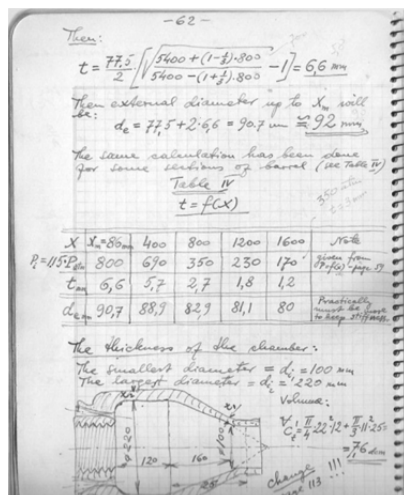 -62-
Then:
t = 77,5/2 [√(5400 + (1-⅓)·800 / 5400 - (1+⅓)·800) - 1] = 6,6 mm
Then external diameter up to Xm will
be:
de = 77,5 + 2·6,6 = 90.7 mm ≅ 92 mm
The same calculation has been done
for some sections of barrel (see Table IV)
Table IV
t = f(X)
X Xm=86mm 400 800 1200 1600 Note
Pi=1,15·P 800 690 350 230 170 given from P=f(x) - page 59
t mm 6,6 5,7 2,7 1,8 1,2
de mm 90,7 88,9 82,9 81,1 80 Practically must be more to keep stiffness.
The thickness of the chamber:
The smallest diameter = di = 100 mm
The largest diameter = di = 220 mm
Volume:
π/4 22²·12 + π/3 11²·25
= 7,6 dcm
ø220
120
160
ø100
change
113 !!!